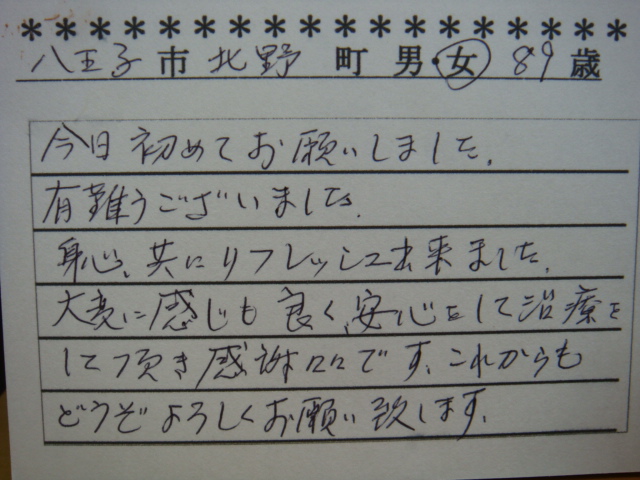 * * * * * * * * * * * * * * * * *
八王子市北野町男・女 89歳
今日初めてお願いしました。
有難うございました。
身心、共にリフレッシュ出来ました。
大変に感じも良く、安心をして治療を
して頂き感謝々々です。これからも
どうぞよろしくお願い致します。